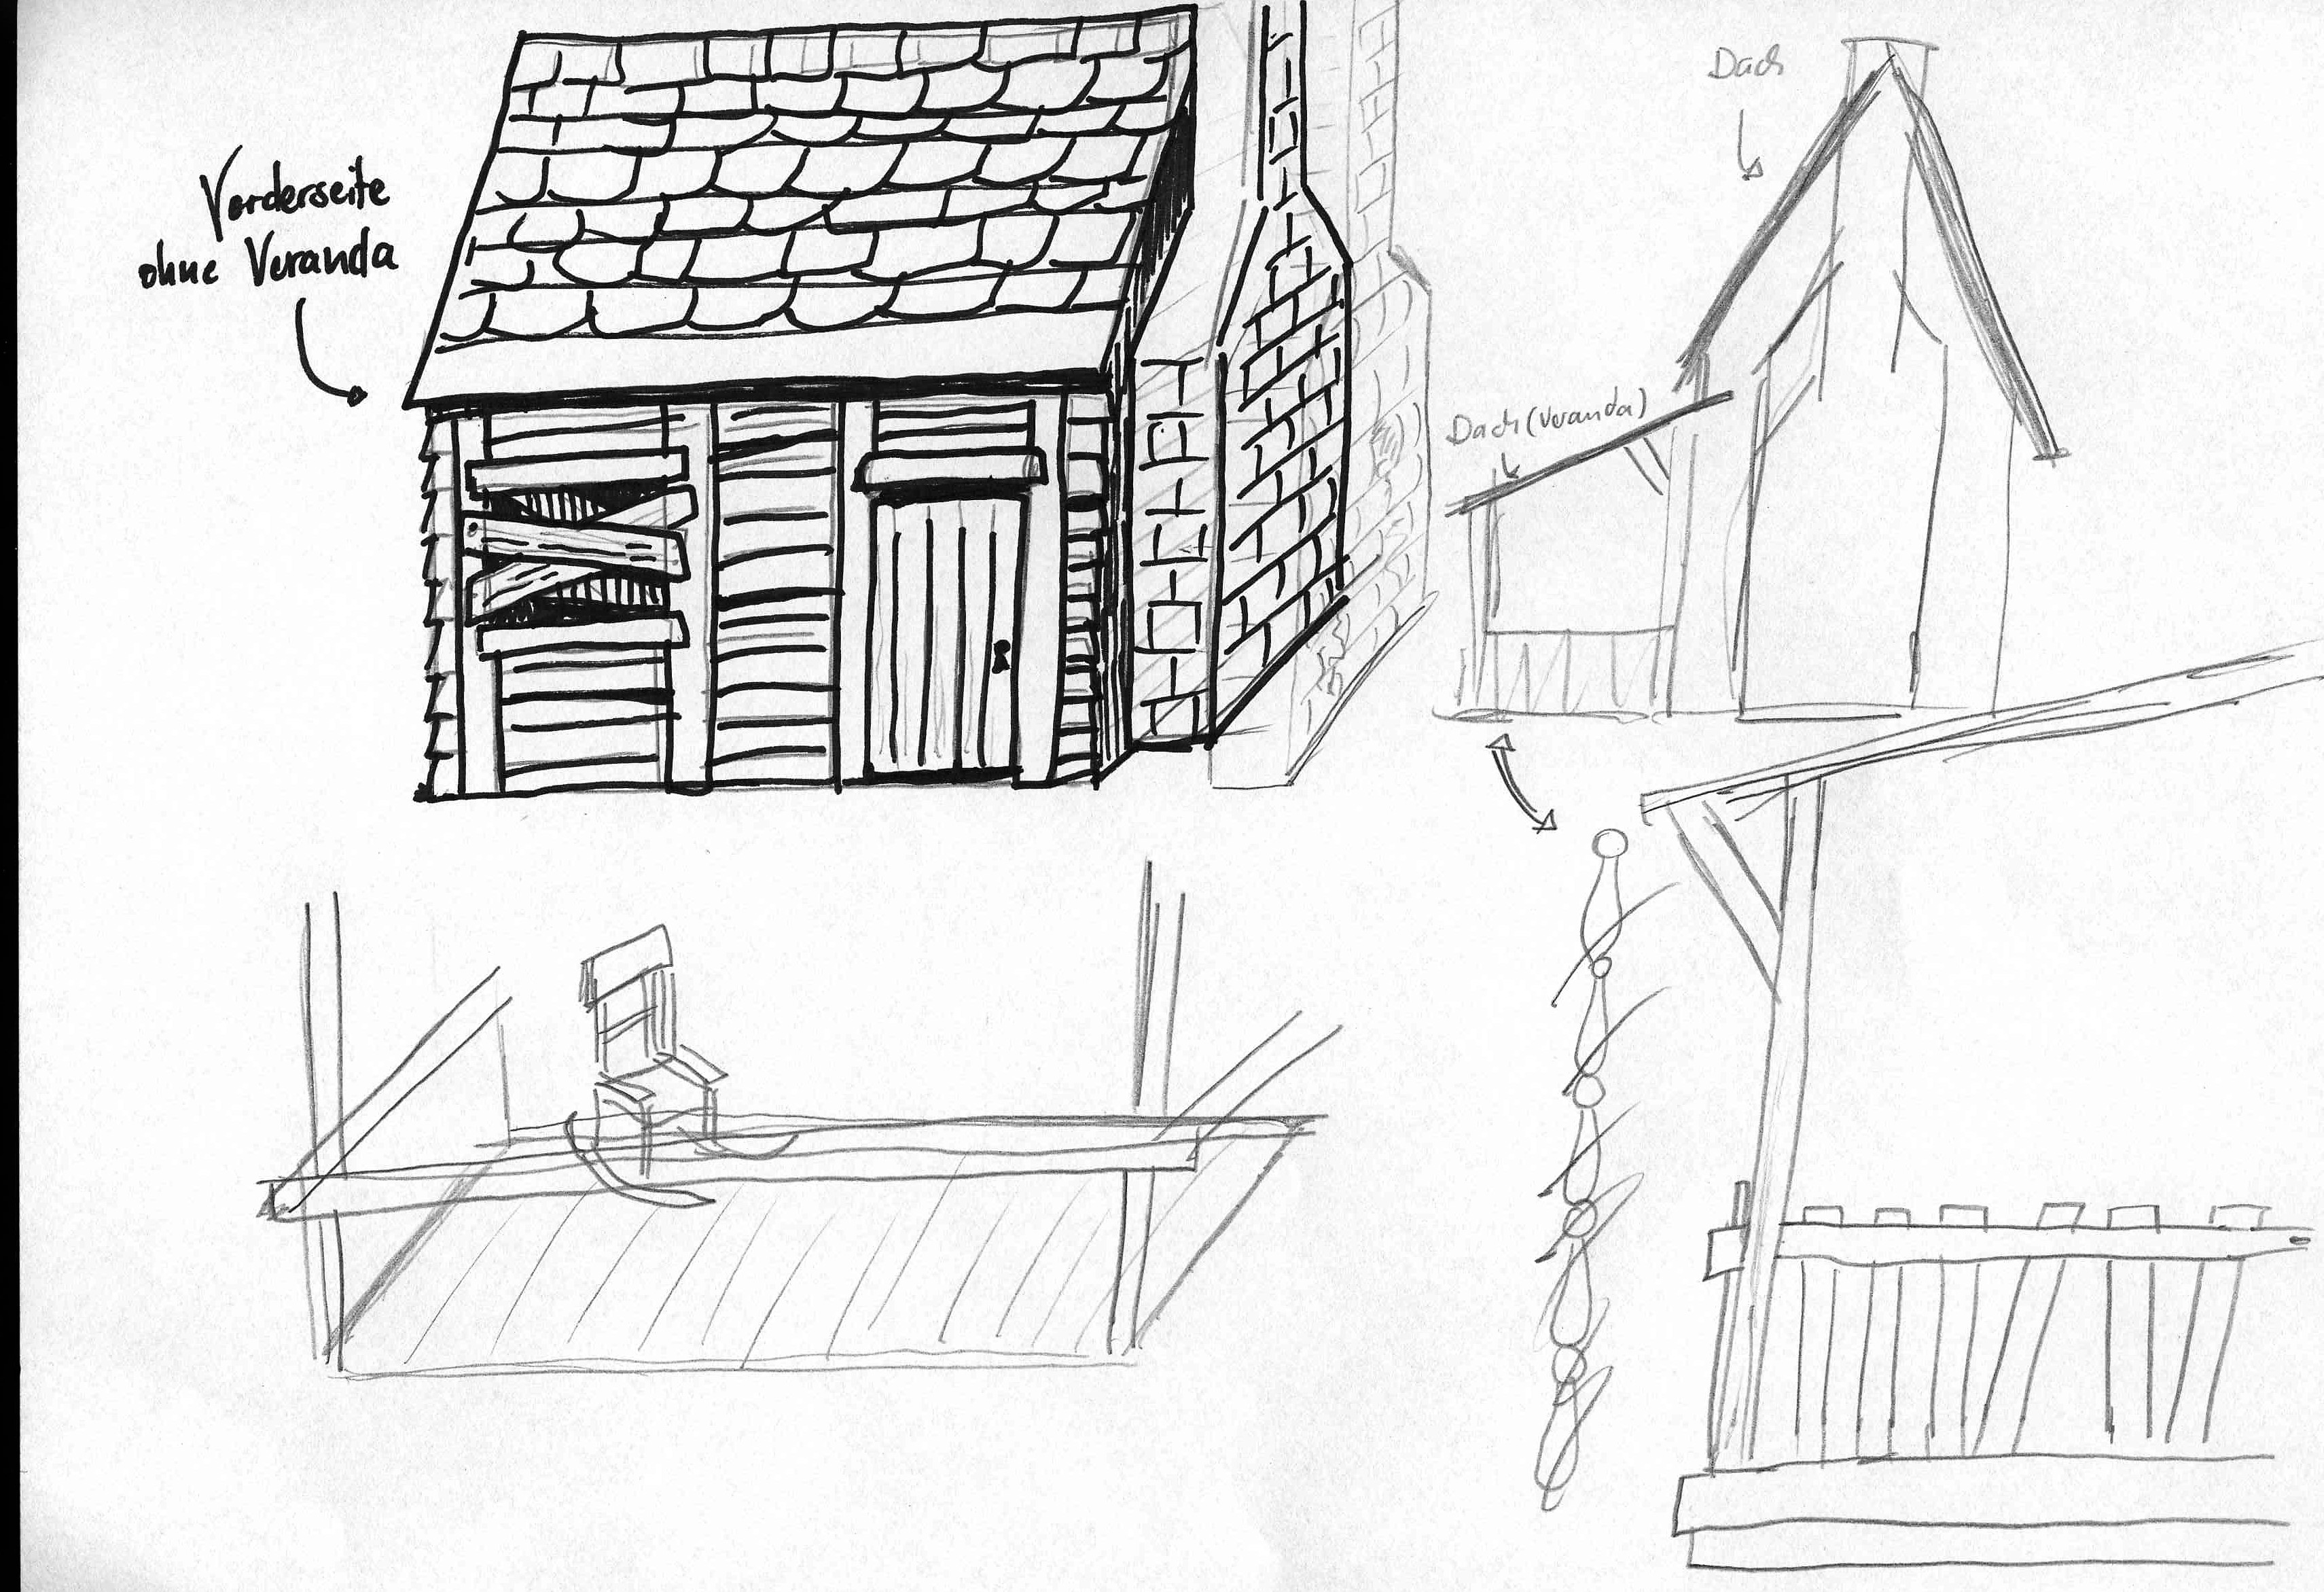 Vorderseite
ohne Veranda
Dach
Dach (Veranda)